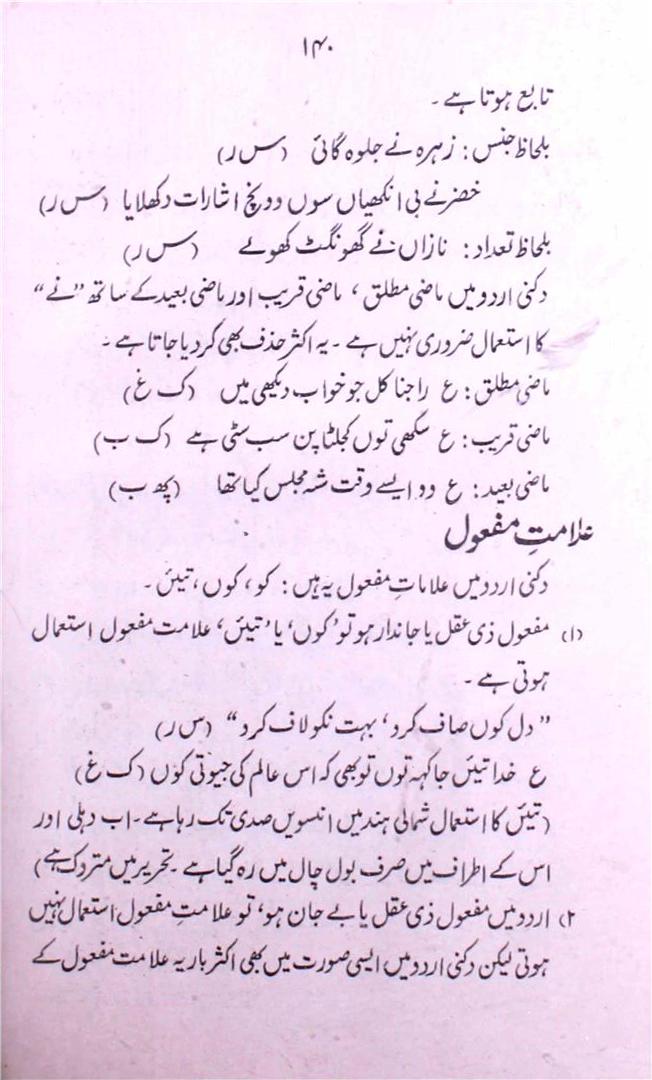 ۱۴۰
تابع ہوتا ہے ۔
بلحاظ جنس : زہرہ نے جلوہ گائی (س ر)
خضر نے بی انکھیاں سوں دونچ اشارات دکھلایا (س ر)
بلحاظ تعداد : نازاں نے گھونگٹ کھولے (س ر)
دکنی اردو میں ماضی مطلق ، ماضی قریب اور ماضی بعید کے ساتھ ”نے“
کا استعمال ضروری نہیں ہے ۔ یہ اکثر حذف بھی کر دیا جاتا ہے ۔
ماضی مطلق : ع راجنا کل جو خواب دیکھی میں (ک غ)
ماضی قریب : ع سکھی توں کجلٹا پن سب سٹی ہے (ک ب)
ماضی بعید : ع وو ایسے وقت شہ مجلس کیا تھا (پھ ب)
علامتِ مفعول
دکنی اردو میں علاماتِ مفعول یہ ہیں : کو ، کوں ، تیئں ۔
(۱) مفعول ذی عقل یا جاندار ہو تو ’کوں‘ یا ’تیئں‘ علامت مفعول استعمال
ہوتی ہے ۔
”دل کوں صاف کرد ، بہت نکو لاف کرد“ (س ر)
ع خدا تیئں جا کہہ توں تو بھی کہ اس عالم کی جیوتی کوں (ک غ)
(تیئں کا استعمال شمالی ہند میں انیسویں صدی تک رہا ہے ۔ اب دہلی اور
اس کے اطراف میں صرف بول چال میں رہ گیا ہے ۔ تحریر میں متروک ہے)
۲) اردو میں مفعول ذی عقل یا بے جان ہو ، تو علامتِ مفعول استعمال نہیں
ہوتی لیکن دکنی اردو میں ایسی صورت میں بھی اکثر بار یہ علامت مفعول کے